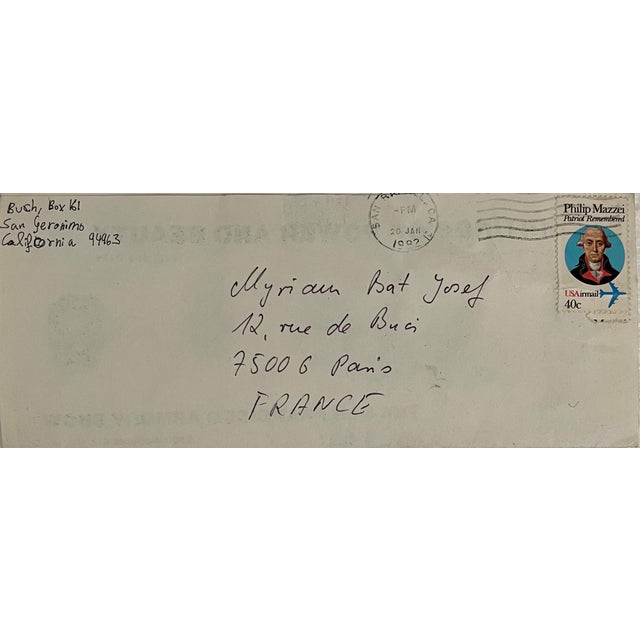 Bush, Box 161
San Geronimo
California 94963
SAN CA
PM
20 JAN
1992
Philip Mazzei
Patriot Remembered
USAirmail
40c
Myriam Bat Josef
12, rue de Buci
75006 Paris
FRANCE